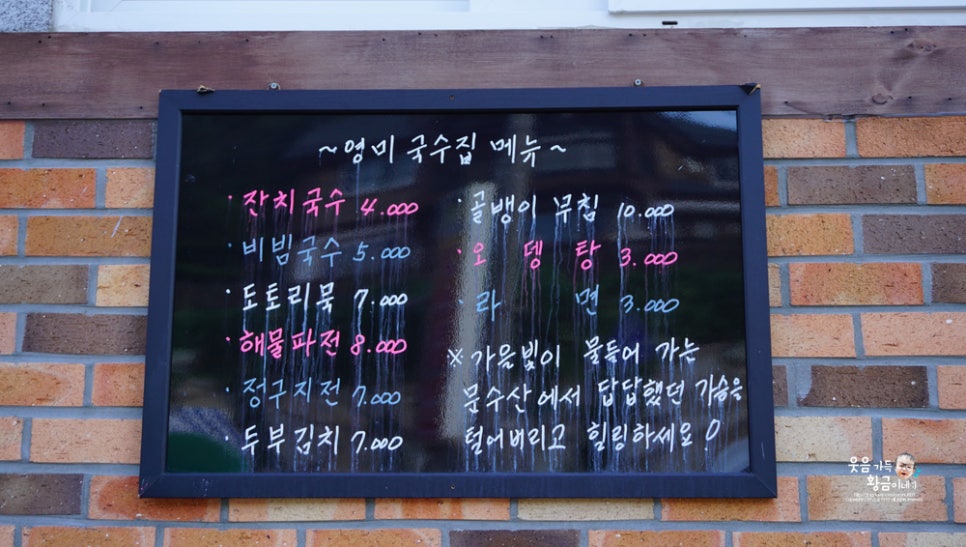 ~영미 국수집 메뉴~
· 잔치국수 4.000
· 비빔국수 5.000
· 도토리묵 7.000
· 해물파전 8.000
· 정구지전 7.000
· 두부김치 7.000
· 골뱅이 무침 10.000
· 오뎅탕 3.000
· 라면 3.000
※ 가을빛이 물들어 가는
문수산에서 답답했던 가슴을
털어버리고 힐링하세요!
웃음 가득
황금이네